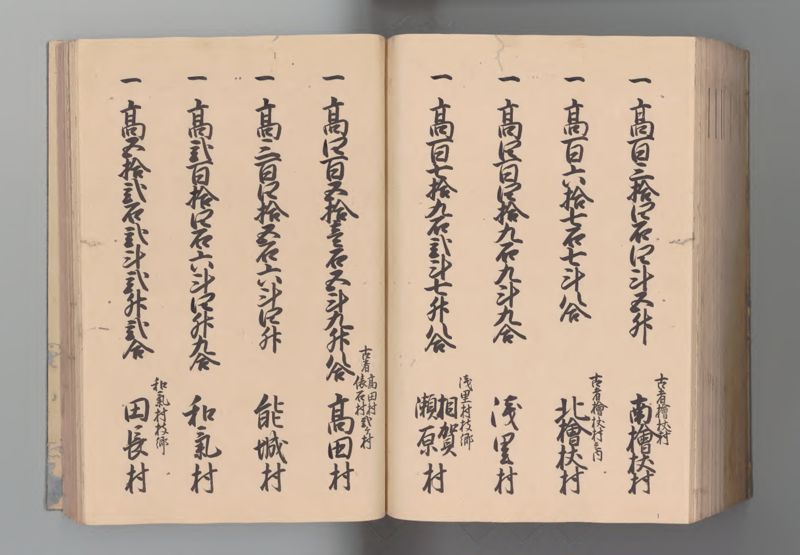 一 高百三拾四石四斗五升 古者檜杖村 南檜杖村
一 高百六拾七石七斗八合 古者檜杖村之内 北檜杖村
一 高四百四拾九石九斗九合 浅里村
一 高百七拾九石弐斗七升八合 浅里村枝郷 相賀 瀬原村
一 高四百五拾壱石五斗九升八合 古者 高田村 俵石村 弐ヶ村 高田村
一 高三百四拾五石六斗四升 能城村
一 高弐百拾四石六斗四升九合 和氣村
一 高五拾弐石弐斗弐升弐合 和氣村枝郷 田長村